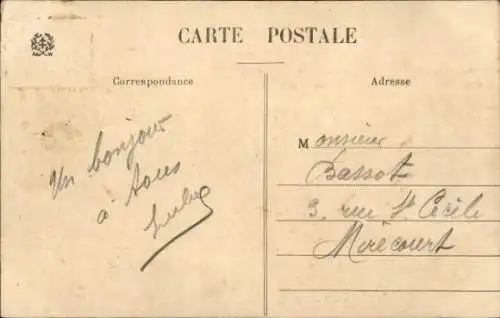 CARTE POSTALE
Correspondance
Adresse
Un bonjour
à tous
Monsieur
Bassot
3, rue Ste Cécile
Mirecourt